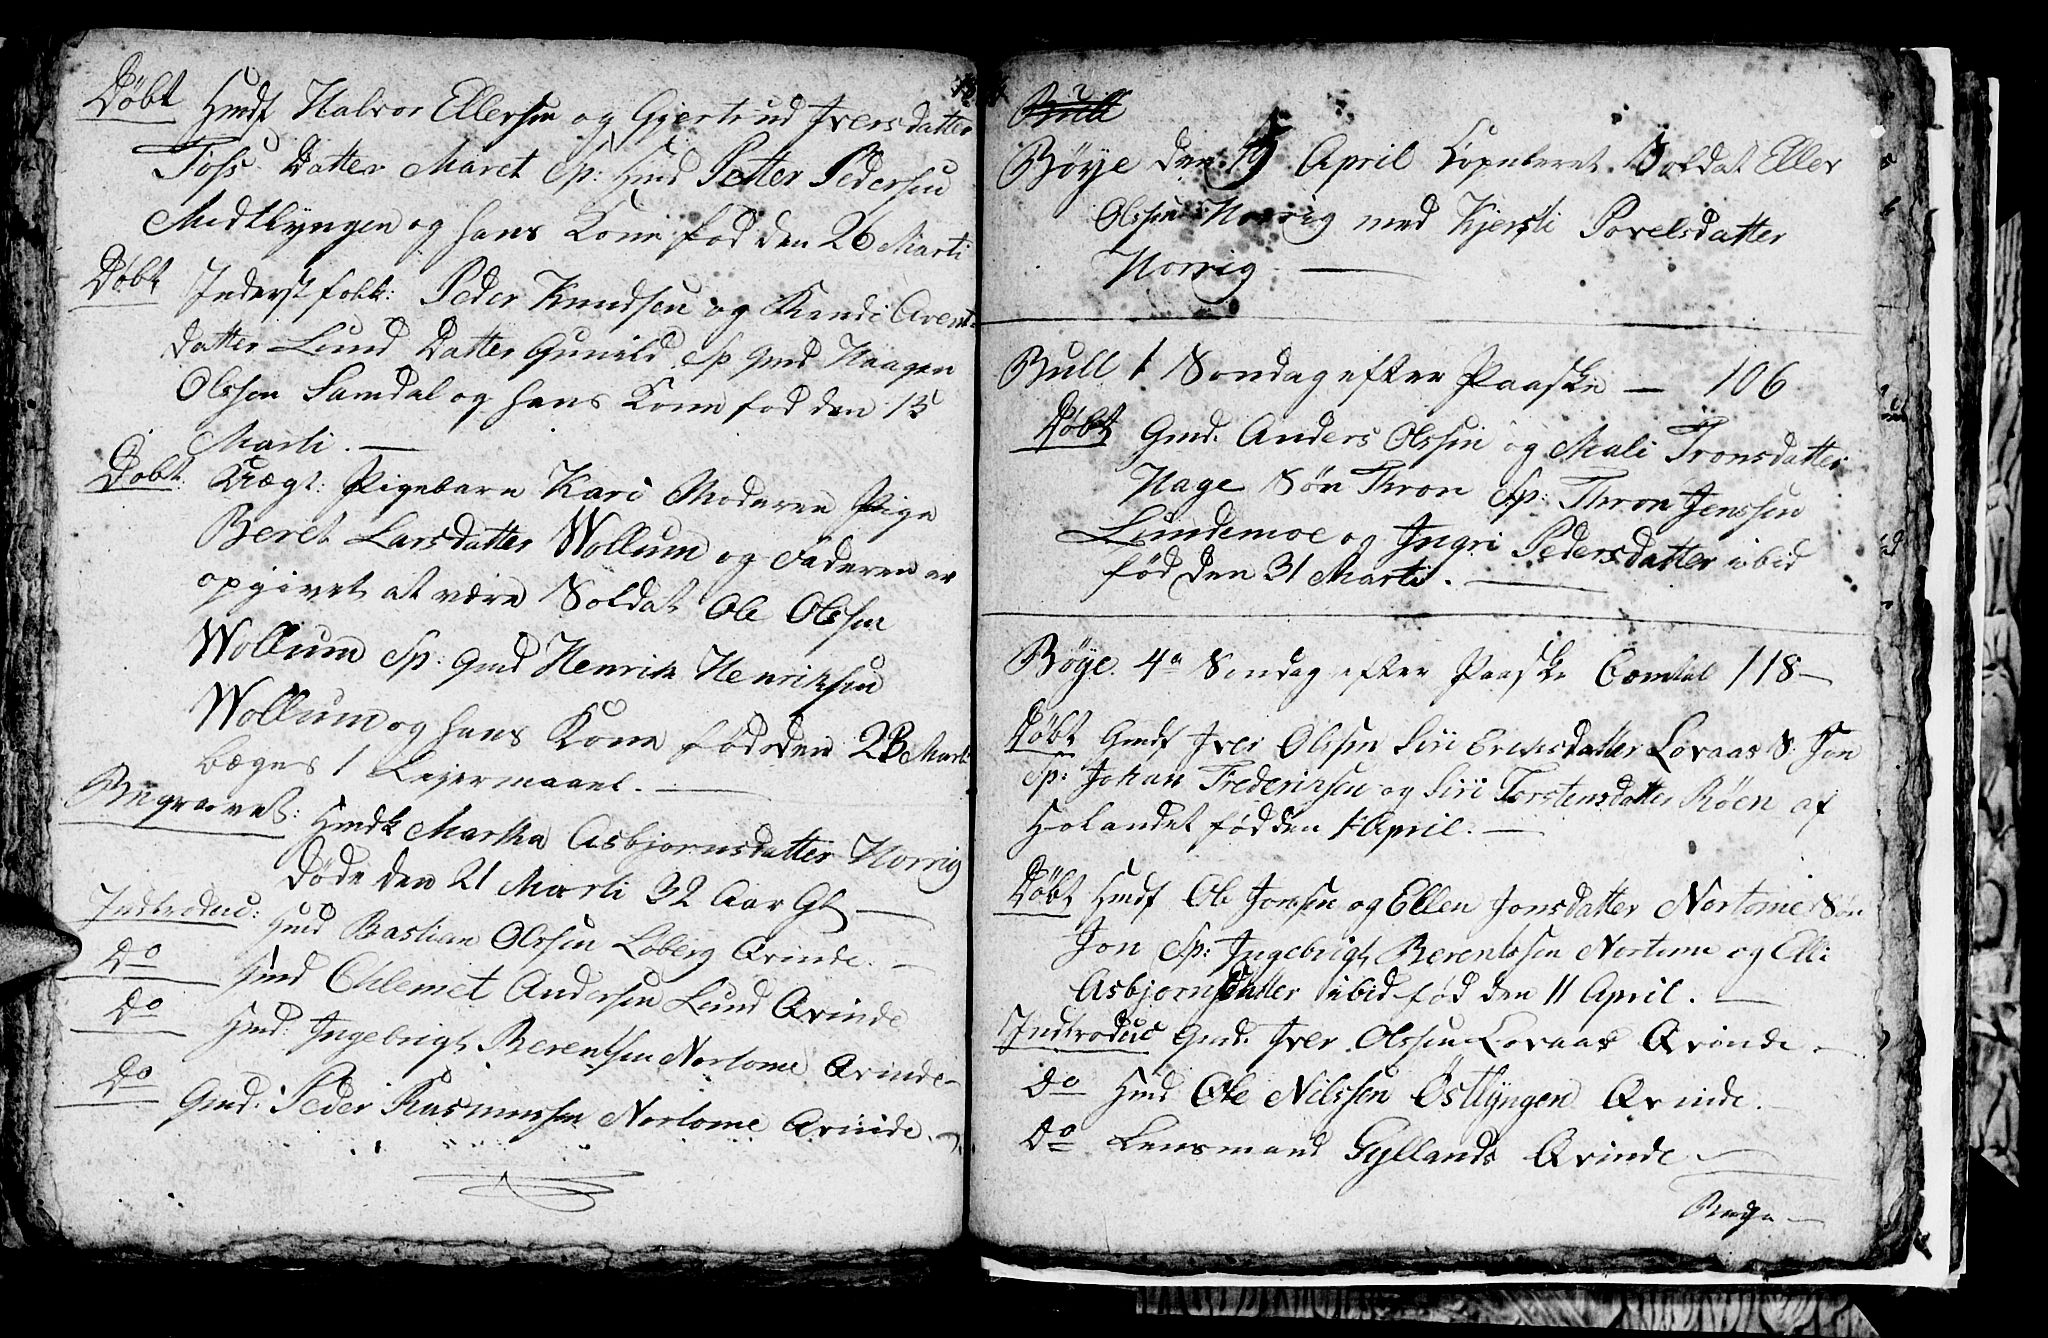 Døbt Hmdf Halvor Ellersen og Gjertrud Iversdatter
Foss Datter Maret Sp: Hmd Petter Pedersen
Midtlyngen og hans Kone fød den 26 Marti
Døbt Inderst folk: Peder Knudsen og Randi Arent
datter Lund Datter Gunild Sp Gmd Haagen
Olssen Samdal og hans Kone fod den 15
Marti. —
Dobt: Uægt: Pigebarn Kari Moderen Pige
Beret Larsdatter Wollum og Faderen er
opgivet at være Soldat Ole Olssen
Wollum Sp: Gmd Henrik Henriksen
Wollum og hans Kone fød den 23 Marti
begges 1 Lejermaael. —
Begravet: Hmdk Martha Asbjornsdatter Horrig
Døde den 21 Marti 32 Aar Gl —
Indtroduc: Hmd Bastian Olssen Loberg Qvinde. —
Do Hmd Chlemet Andersen Lund Qvinde
Do Hmd: Ingebrigt Berentssen Nortome Qvinde —
Do Gmd: Peder Rasmussen Nortome Qvinde —
Bull
Bøye den 19 April Copuleret Soldat Eller
Olssen Horrig med Kjersti Povelsdatter
Horrig —
Bull 1 Søndag efter Paaske — 106
Døbt Gmd. Anders Olssen og Mali Tronsdatter
Hage Søn Thron Sp: Thron Jenssen
Lundemoe og Ingri Pedersdatter ibid
fød den 31 Marti. —
Bøye. 4de Søndag efter Paaske Comtal 118 —
Døbt Gmdf Iver Olssen Siri Ericksdatter Lovaas S. Jon
Sp: Johan Frederiksen og Siri Torstensdatter Røen af
Holandet fød den 1 April. —
Døbt Hmdf Ole Jonssen og Ellen Jonsdatter Nortome Søn
Jon Sp: Ingebrigt Berentssen Nortome og Elli
Asbjornsdatter ibid fød den 11 April. —
Indtroduc Gmd. Iver Olssen Lovaas Qvinde —
Do Hmd Ole Nilssen Østlyngen Qvinde. —
Do Lensmand Gyllands Qvinde —